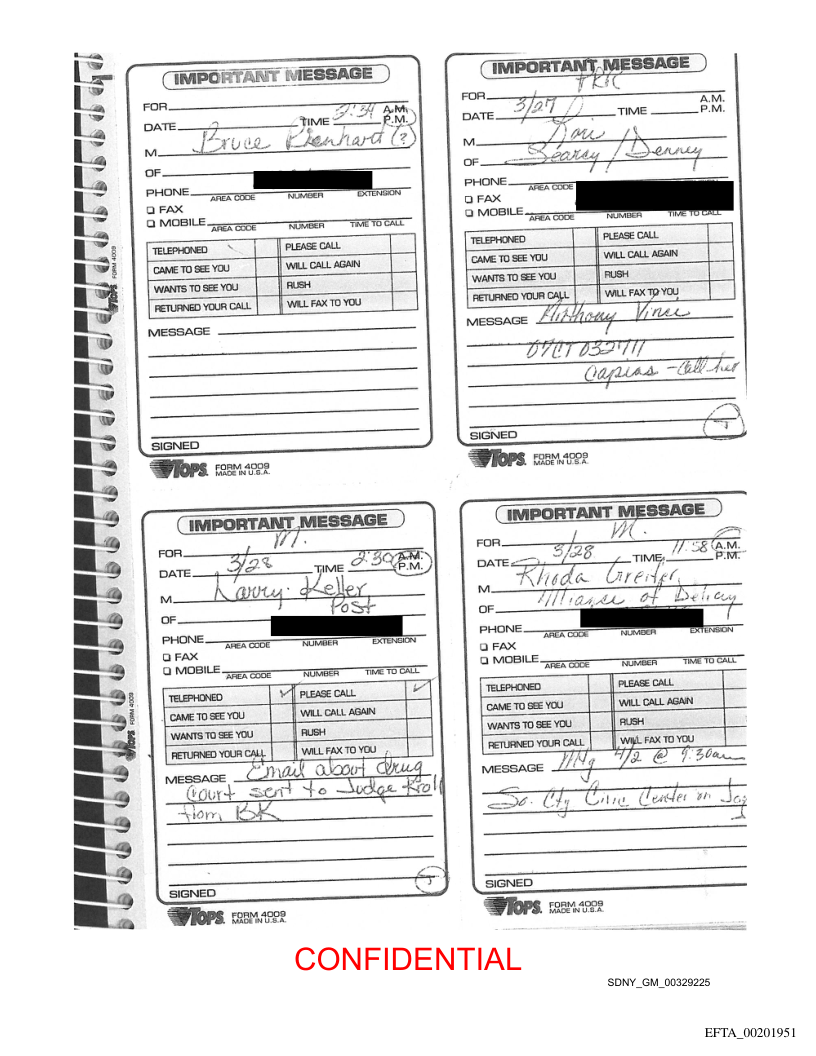 IMPORTANT MESSAGE
FOR
DATE TIME 2:34 A.M.
P.M.
M Bruce (?)
OF
PHONE
AREA CODE NUMBER EXTENSION
FAX
MOBILE
AREA CODE NUMBER TIME TO CALL
TELEPHONED PLEASE CALL
CAME TO SEE YOU WILL CALL AGAIN
WANTS TO SEE YOU RUSH
RETURNED YOUR CALL WILL FAX TO YOU
MESSAGE
SIGNED
TOPS FORM 4009
MADE IN U.S.A.
TOPS FORM 4009
IMPORTANT MESSAGE
FOR
DATE 3/27 TIME A.M.
P.M.
M
OF Searcy / Denney
PHONE
AREA CODE
FAX
MOBILE
AREA CODE NUMBER TIME TO CALL
TELEPHONED PLEASE CALL
CAME TO SEE YOU WILL CALL AGAIN
WANTS TO SEE YOU RUSH
RETURNED YOUR CALL WILL FAX TO YOU
MESSAGE Anthony Vinci
07CT032711
Capias - Call her
J
SIGNED
TOPS FORM 4009
MADE IN U.S.A.
IMPORTANT MESSAGE
FOR M.
DATE 3/28 TIME 2:30 A.M.
P.M.
M Larry Keller
OF Post
PHONE
AREA CODE NUMBER EXTENSION
FAX
MOBILE
AREA CODE NUMBER TIME TO CALL
TELEPHONED ✓ PLEASE CALL ✓
CAME TO SEE YOU WILL CALL AGAIN
WANTS TO SEE YOU RUSH
RETURNED YOUR CALL WILL FAX TO YOU
MESSAGE Email about drug
Court sent to Judge Kroll
from BK
J
SIGNED
TOPS FORM 4009
MADE IN U.S.A.
TOPS FORM 4009
IMPORTANT MESSAGE
FOR M.
DATE 3/28 TIME 11:58 A.M.
P.M.
M Rhoda Greifer
OF Alliance of Delray
PHONE
AREA CODE NUMBER EXTENSION
FAX
MOBILE
AREA CODE NUMBER TIME TO CALL
TELEPHONED PLEASE CALL
CAME TO SEE YOU WILL CALL AGAIN
WANTS TO SEE YOU RUSH
RETURNED YOUR CALL WILL FAX TO YOU
MESSAGE Mtg 4/2 @ 9:30am
So. Cty Civic Center on
SIGNED
TOPS FORM 4009
MADE IN U.S.A.
CONFIDENTIAL
SDNY_GM_00329225
EFTA_00201951